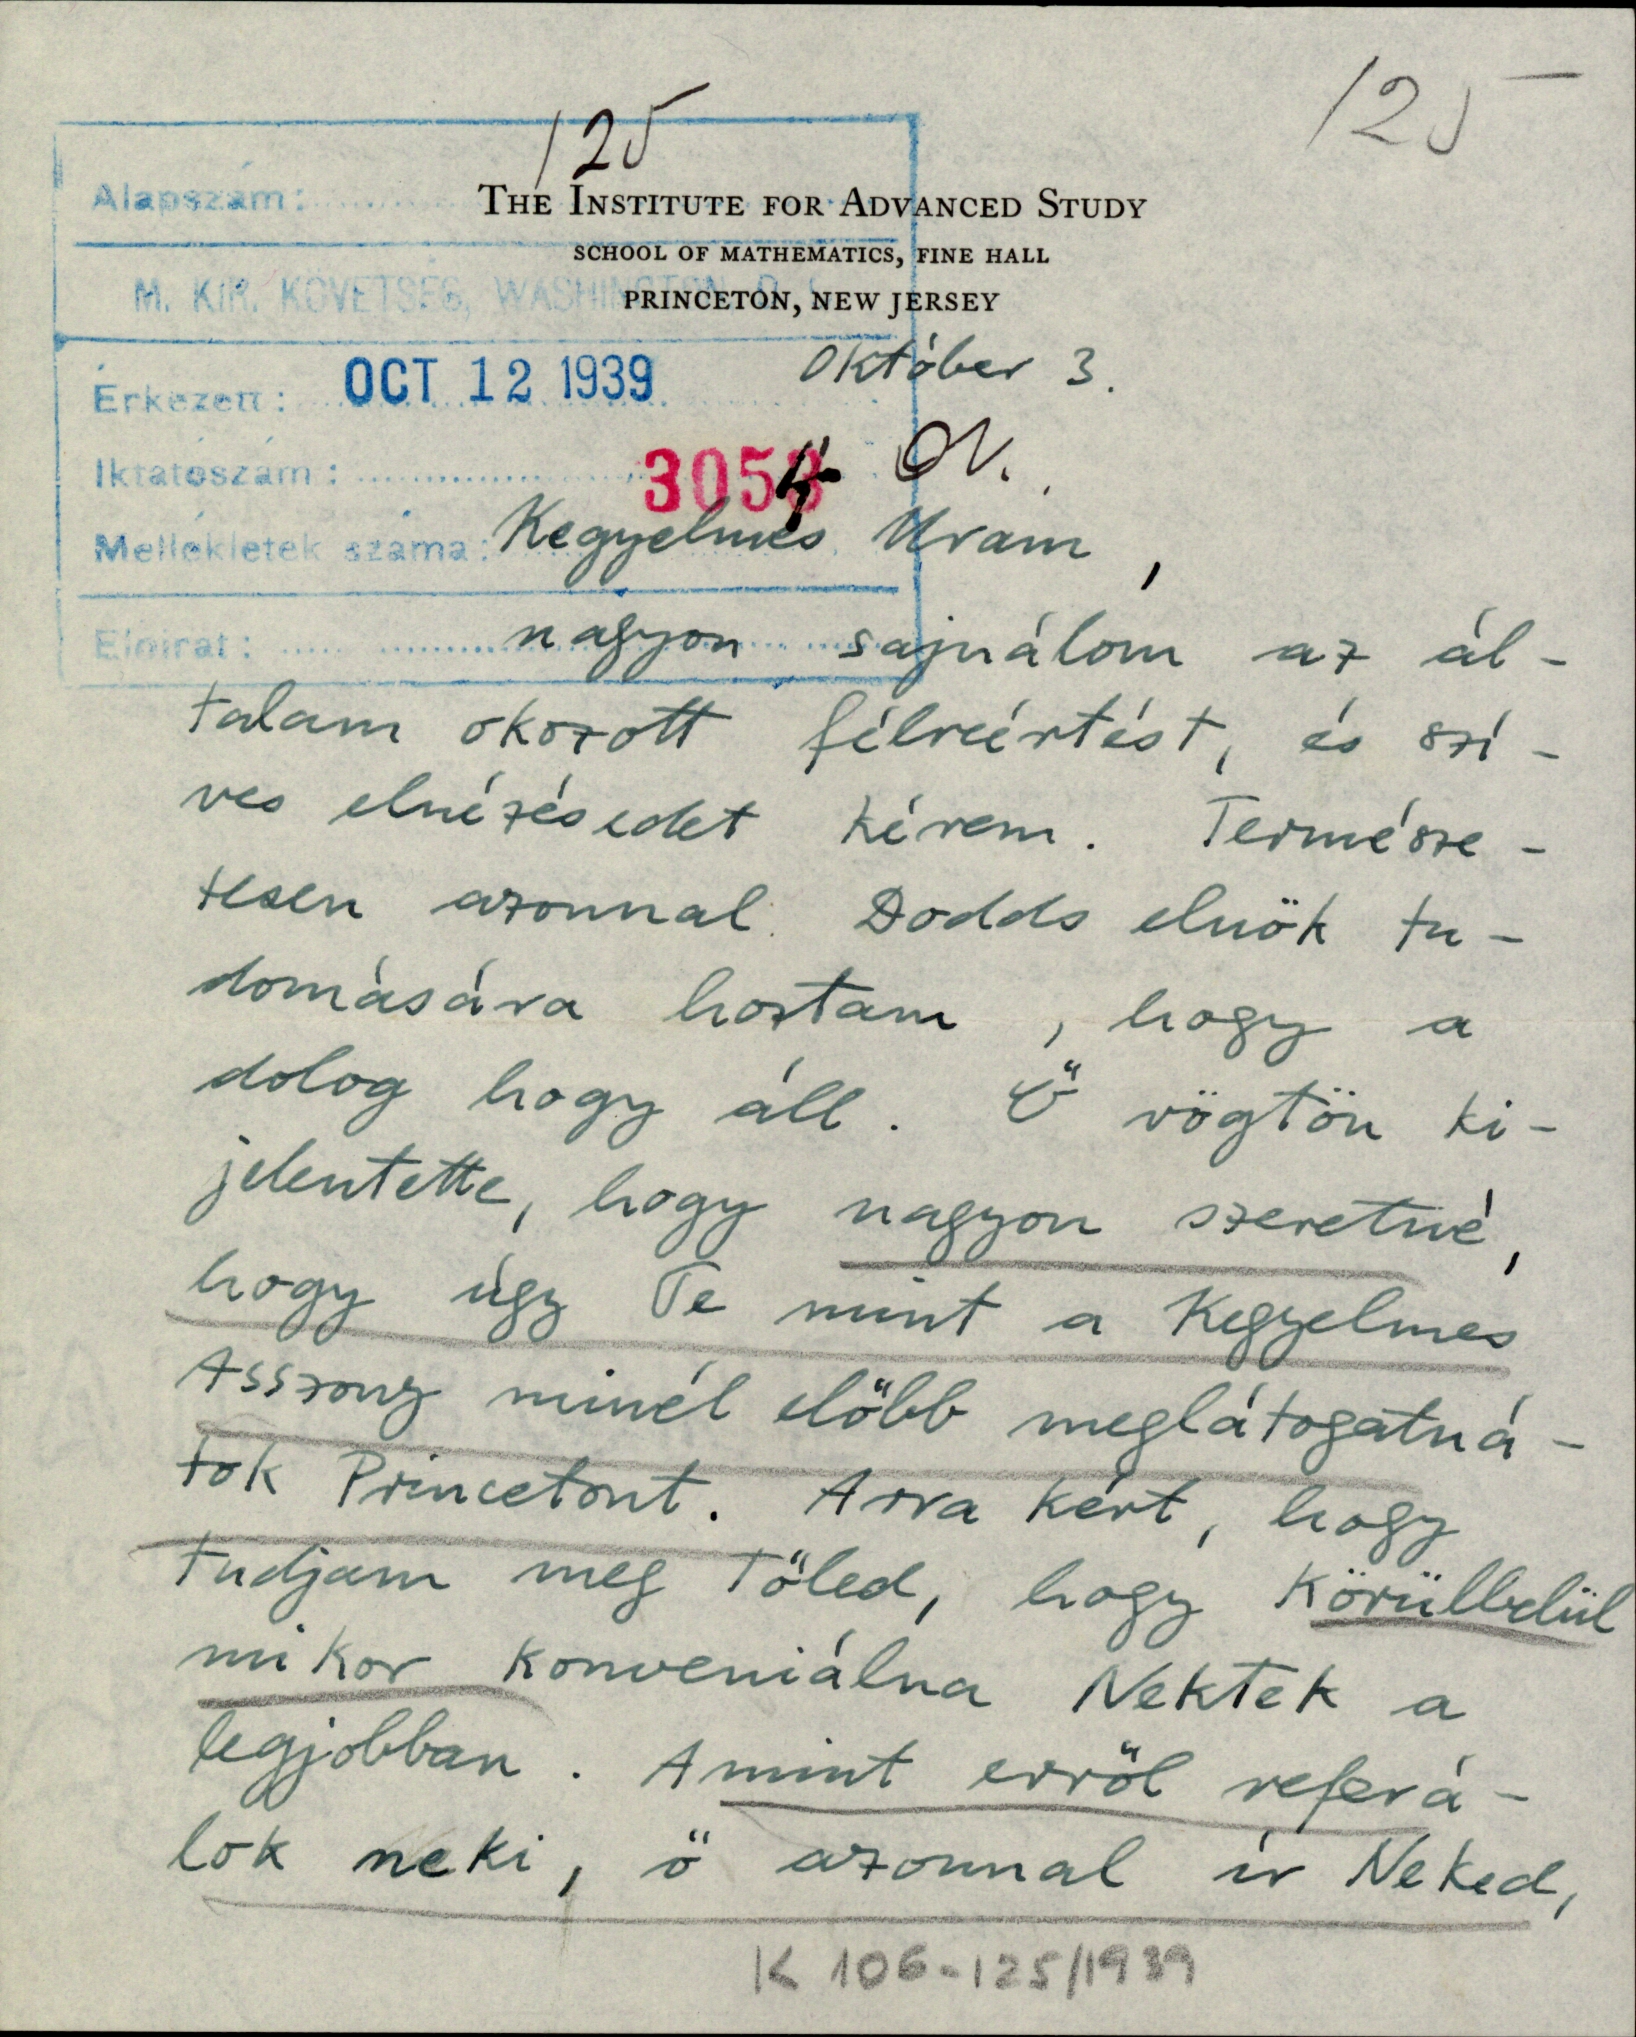 125
125
Alapszám:
THE INSTITUTE FOR ADVANCED STUDY
SCHOOL OF MATHEMATICS, FINE HALL
M. KIR. KÖVETSÉG, WASHINGTON, D. C.
PRINCETON, NEW JERSEY
Október 3.
Érkezett: OCT 12 1939
Iktatószám: 3054
Mellékletek száma:
Kegyelmes Uram,
Előirat:
nagyon sajnálom az ál-
talam okozott félreértést, és szí-
ves elnézésedet kérem. Természe-
tesen azonnal Dodds elnök tu-
domására hoztam, hogy a
dolog hogy áll. Ő vögtön ki-
jelentette, hogy nagyon szeretné,
hogy úgy Te mint a Kegyelmes
Asszony minél előbb meglátogatná-
tok Princetont. Arra kért, hogy
tudjam meg Tőled, hogy körülbelül
mikor konveniálna Nektek a
legjobban. Amint erről referá-
lok neki, ő azonnal ír Neked,
K 106-125/1939